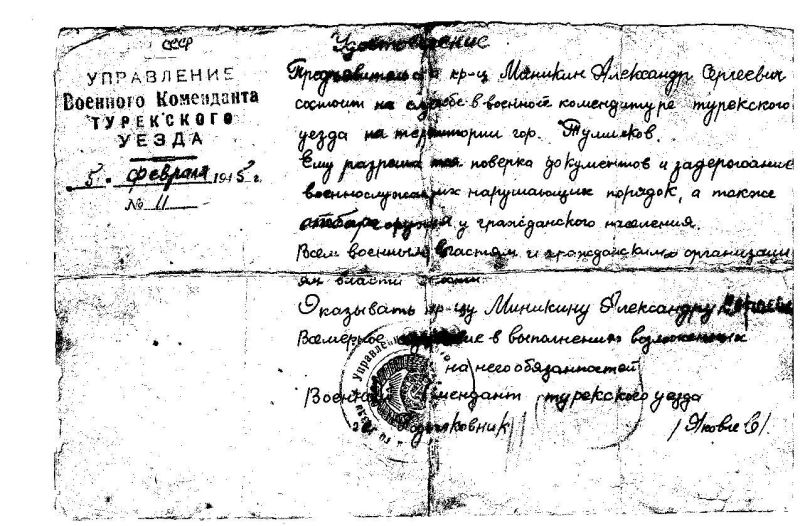 СССР
УПРАВЛЕНИЕ
Военного Коменданта
ТУРЕКСКОГО
УЕЗДА
5. февраля 1945 г.
№ 11
Удостоверение
Предъявитель кр-ц Миникин Александр Сергеевич
состоит на службе в военной комендатуре турекского
уезда на территории гор. Тулишков.
Ему разрешается поверка документов и задержание
военнослужащих нарушающих порядок, а также
отбора оружия у гражданского населения.
Всем военным властям и гражданским организаци
ям власти
Оказывать кр-цу Миникину Александру
Всемерное в выполнении возложенных
на него обязанностей
Военный комендант турекского уезда
Подполковник /Яковлев/
Управление